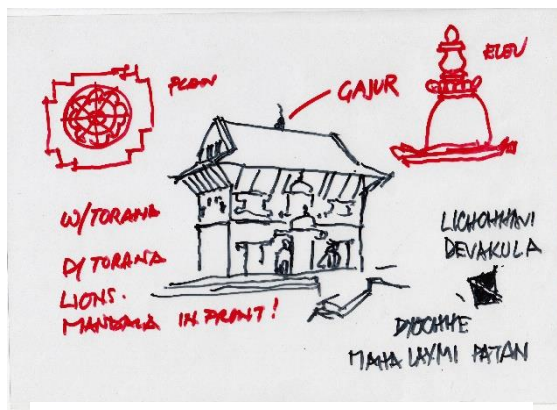 ELEV
PLAN
GAJUR
W/TORANA
D/TORANA
LIONS.
MANDALA IN FRONT!
LICHCHHAVI
DEVAKULA
DYOCHHE
MAHA LAXMI PATAN